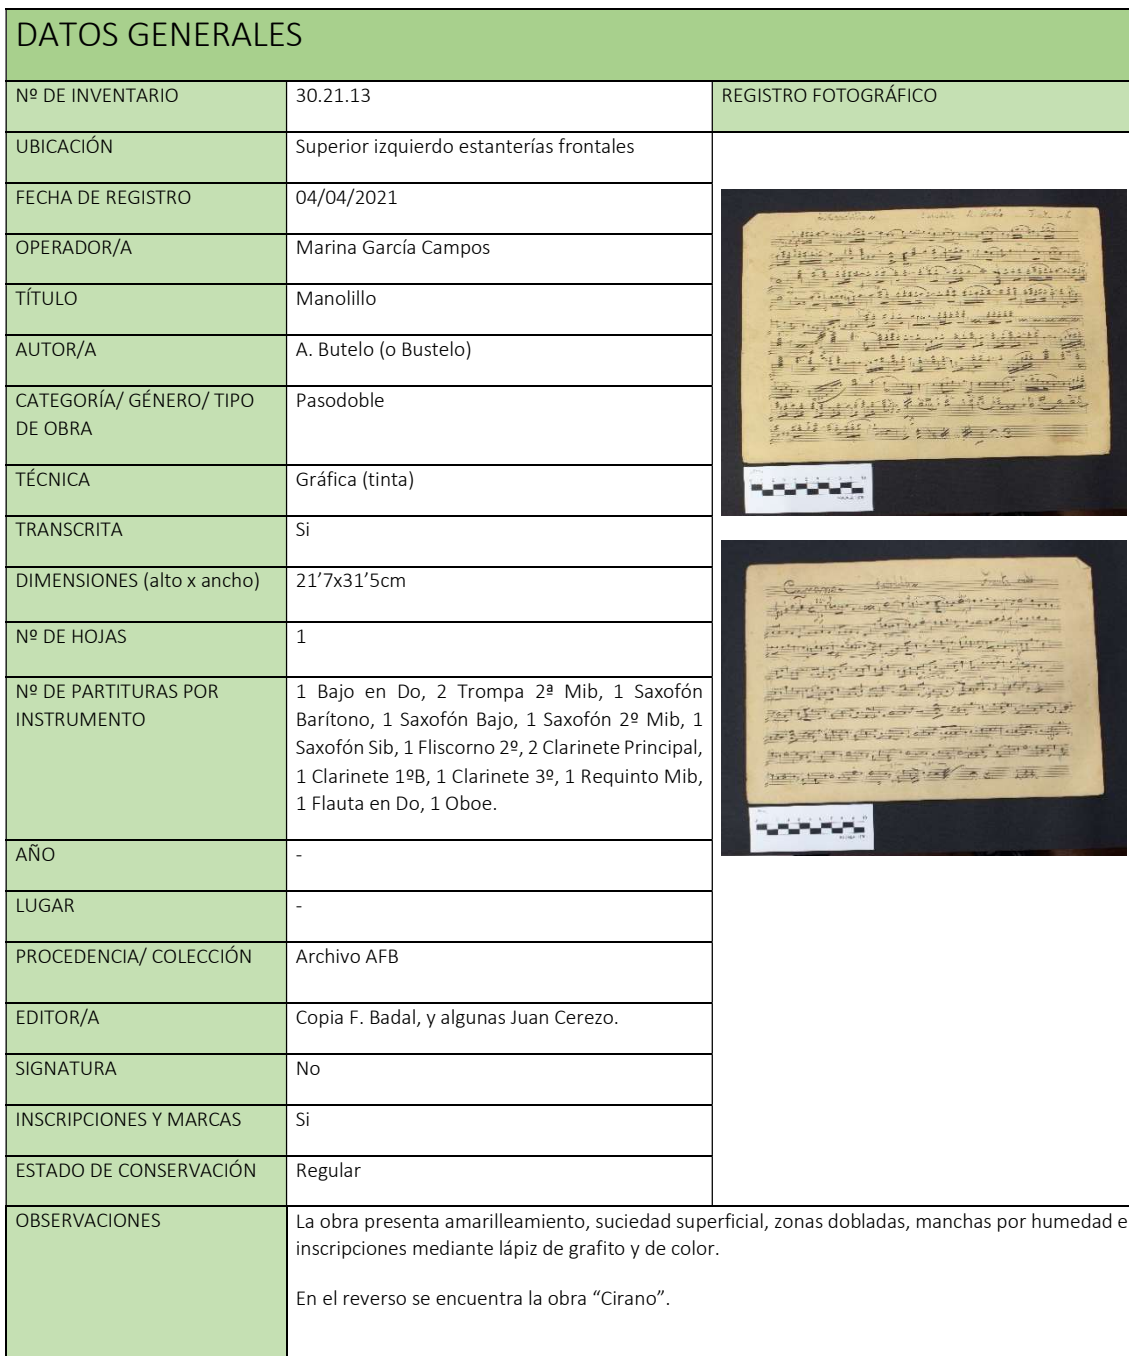 DATOS GENERALES
Nº DE INVENTARIO
30.21.13
REGISTRO FOTOGRÁFICO
UBICACIÓN
Superior izquierdo estanterías frontales
FECHA DE REGISTRO
04/04/2021
OPERADOR/A
Marina García Campos
TÍTULO
Manolillo
AUTOR/A
A. Butelo (o Bustelo)
CATEGORÍA/ GÉNERO/ TIPO
DE OBRA
Pasodoble
TÉCNICA
Gráfica (tinta)
TRANSCRITA
Si
DIMENSIONES (alto x ancho)
21’7x31’5cm
Nº DE HOJAS
1
Nº DE PARTITURAS POR
INSTRUMENTO
1 Bajo en Do, 2 Trompa 2ª Mib, 1 Saxofón
Barítono, 1 Saxofón Bajo, 1 Saxofón 2º Mib, 1
Saxofón Sib, 1 Fliscorno 2º, 2 Clarinete Principal,
1 Clarinete 1ºB, 1 Clarinete 3º, 1 Requinto Mib,
1 Flauta en Do, 1 Oboe.
AÑO
-
LUGAR
-
PROCEDENCIA/ COLECCIÓN
Archivo AFB
EDITOR/A
Copia F. Badal, y algunas Juan Cerezo.
SIGNATURA
No
INSCRIPCIONES Y MARCAS
Si
ESTADO DE CONSERVACIÓN
Regular
OBSERVACIONES
La obra presenta amarilleamiento, suciedad superficial, zonas dobladas, manchas por humedad e
inscripciones mediante lápiz de grafito y de color.
En el reverso se encuentra la obra “Cirano”.